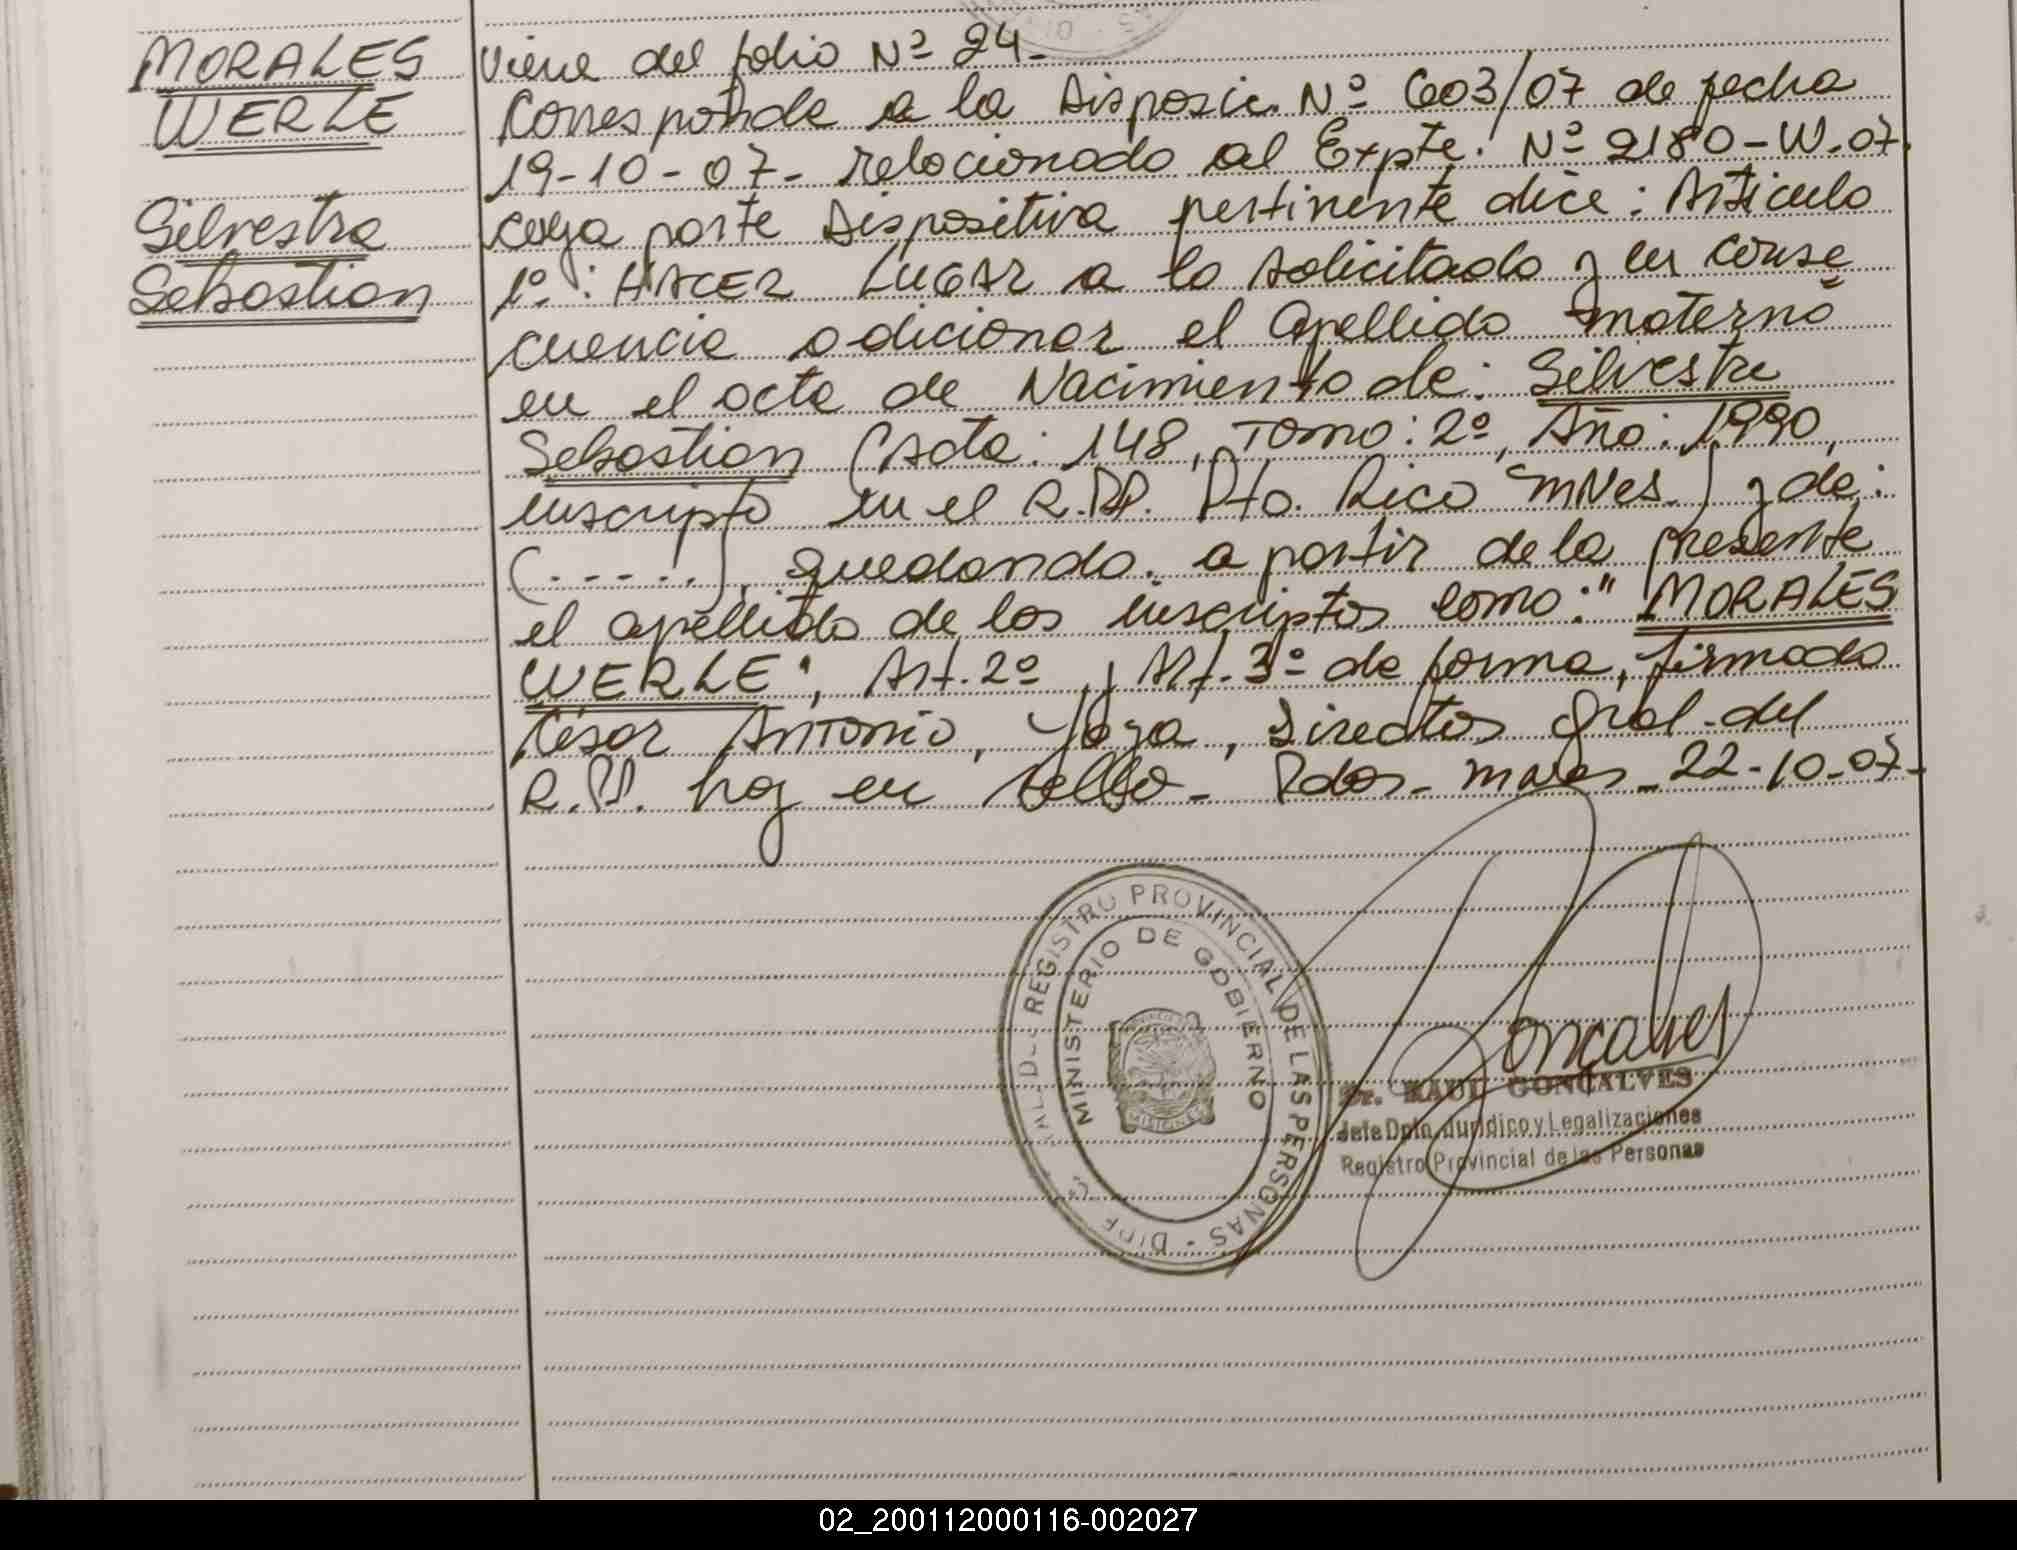 MORALES
WERLE
Silvestre
Sebastian
Viene del folio Nº 24-
Corresponde a la Disposic. Nº 603/07 de fecha
19-10-07- relacionado al Expte. Nº 2180-W-07.
cuya parte Dispositiva pertinente dice: Articulo
1º: HACER LUGAR a lo solicitado y en conse
cuencia adicionar el apellido materno
en el acta de Nacimiento de: Silvestre
Sebastian (Acta: 148, Tomo: 2º, Año: 1990,
inscripto en el R.P.P. Pto. Rico Mnes.) y de:
(.....), quedando a partir de la presente
el apellido de los inscriptos como: " MORALES
WERLE", Art. 2º y Art. 3º de forma, firmado
César Antonio, Director Gral. del
R.P. hay un sello- Pdas- Mnes- 22-10-07-
REGISTRO PROVINCIAL DE LAS PERSONAS
MINISTERIO DE GOBIERNO
MISIONES
Goncalves
Dr. RAUL GONCALVES
Jefe Dpto. Jurídico y Legalizaciones
Registro Provincial de las Personas
02_200112000116-002027